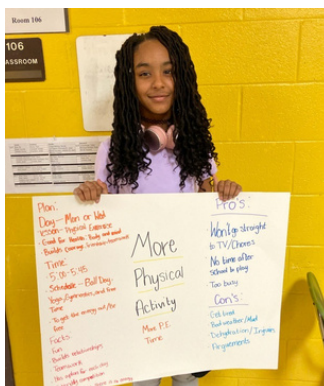 Room 106
106
CLASSROOM
Plan:
Day - Mon or Wed
Good for Health: Body and mind
Time:
5:00-5:45
- Schedule - Ball Day
Yoga, Gymnastics, and Free
Time
- To get the energy out/Be
free
Facts:
Fun
Builds relationships
Teamwork
More
Physical
Activity
More P.E.
Time
Pro's:
Won't go straight
to TV/Chores
No time after
School to play
Too busy
Con's:
Get hurt
Bad weather/
Dehydration/Injuries
Arguments